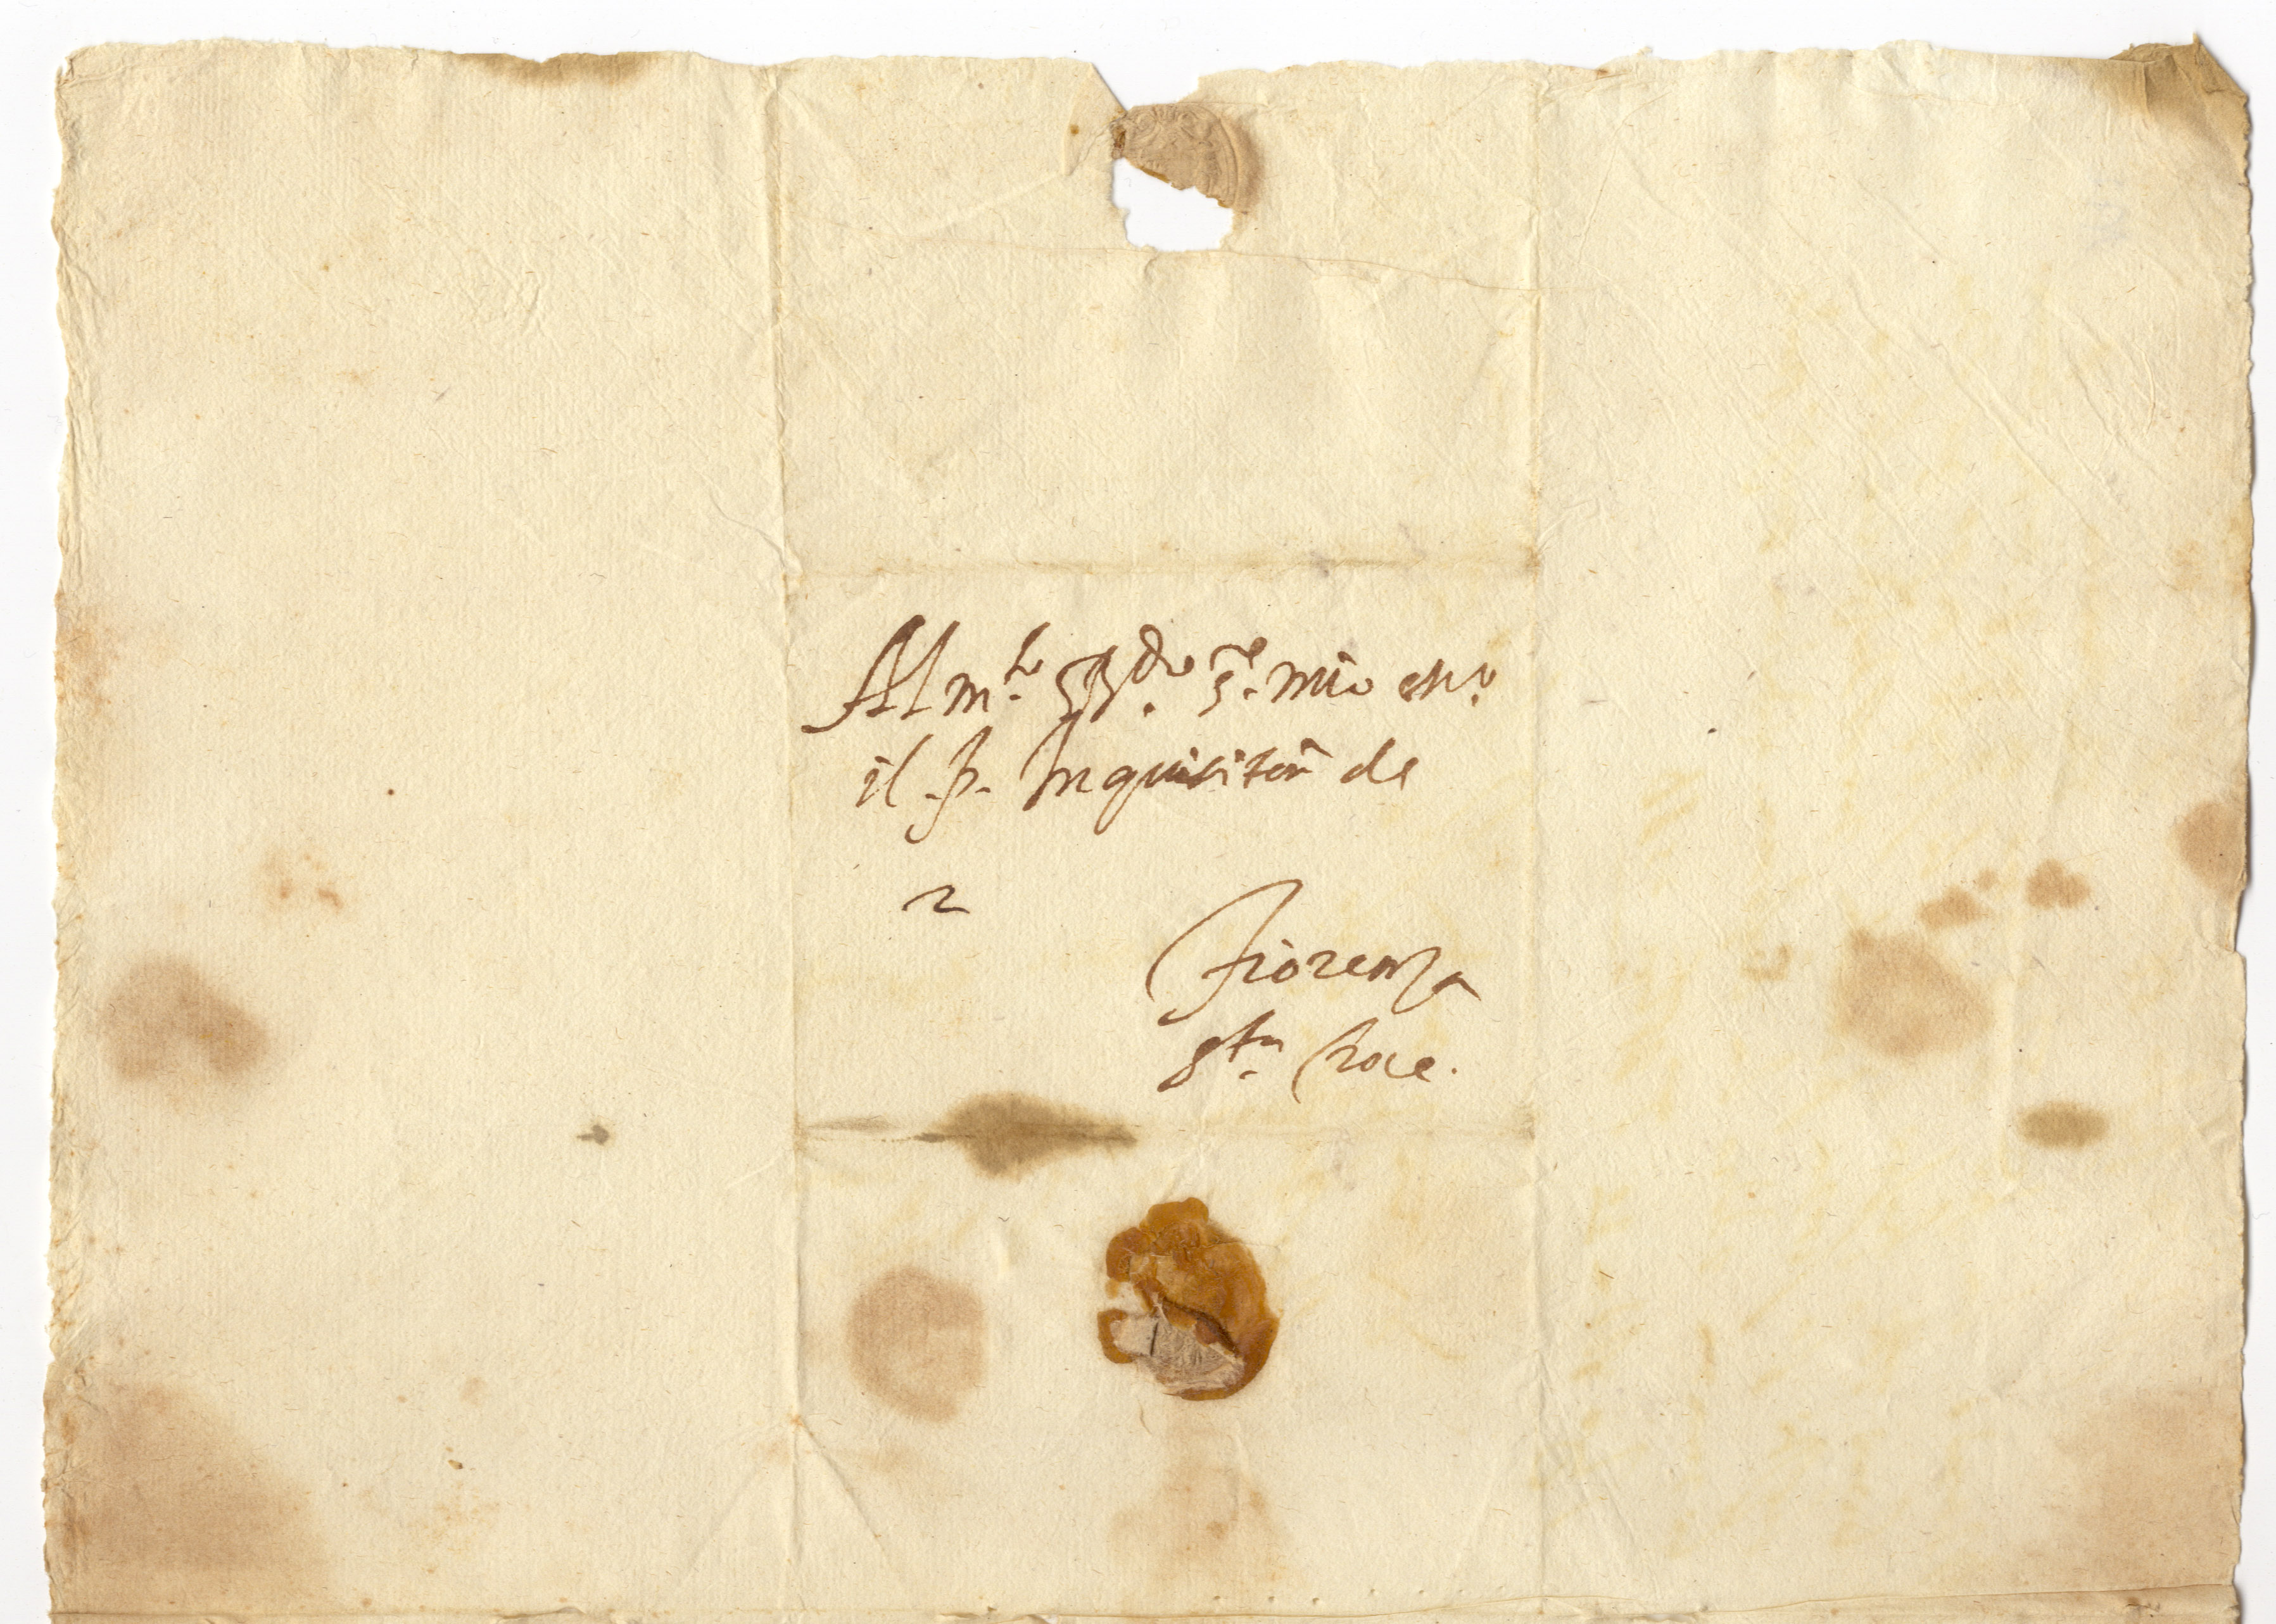 Al m.to R.do S.re mio oss.o
il p. Inquisitor de
Fiorenza
S.ta Croce.